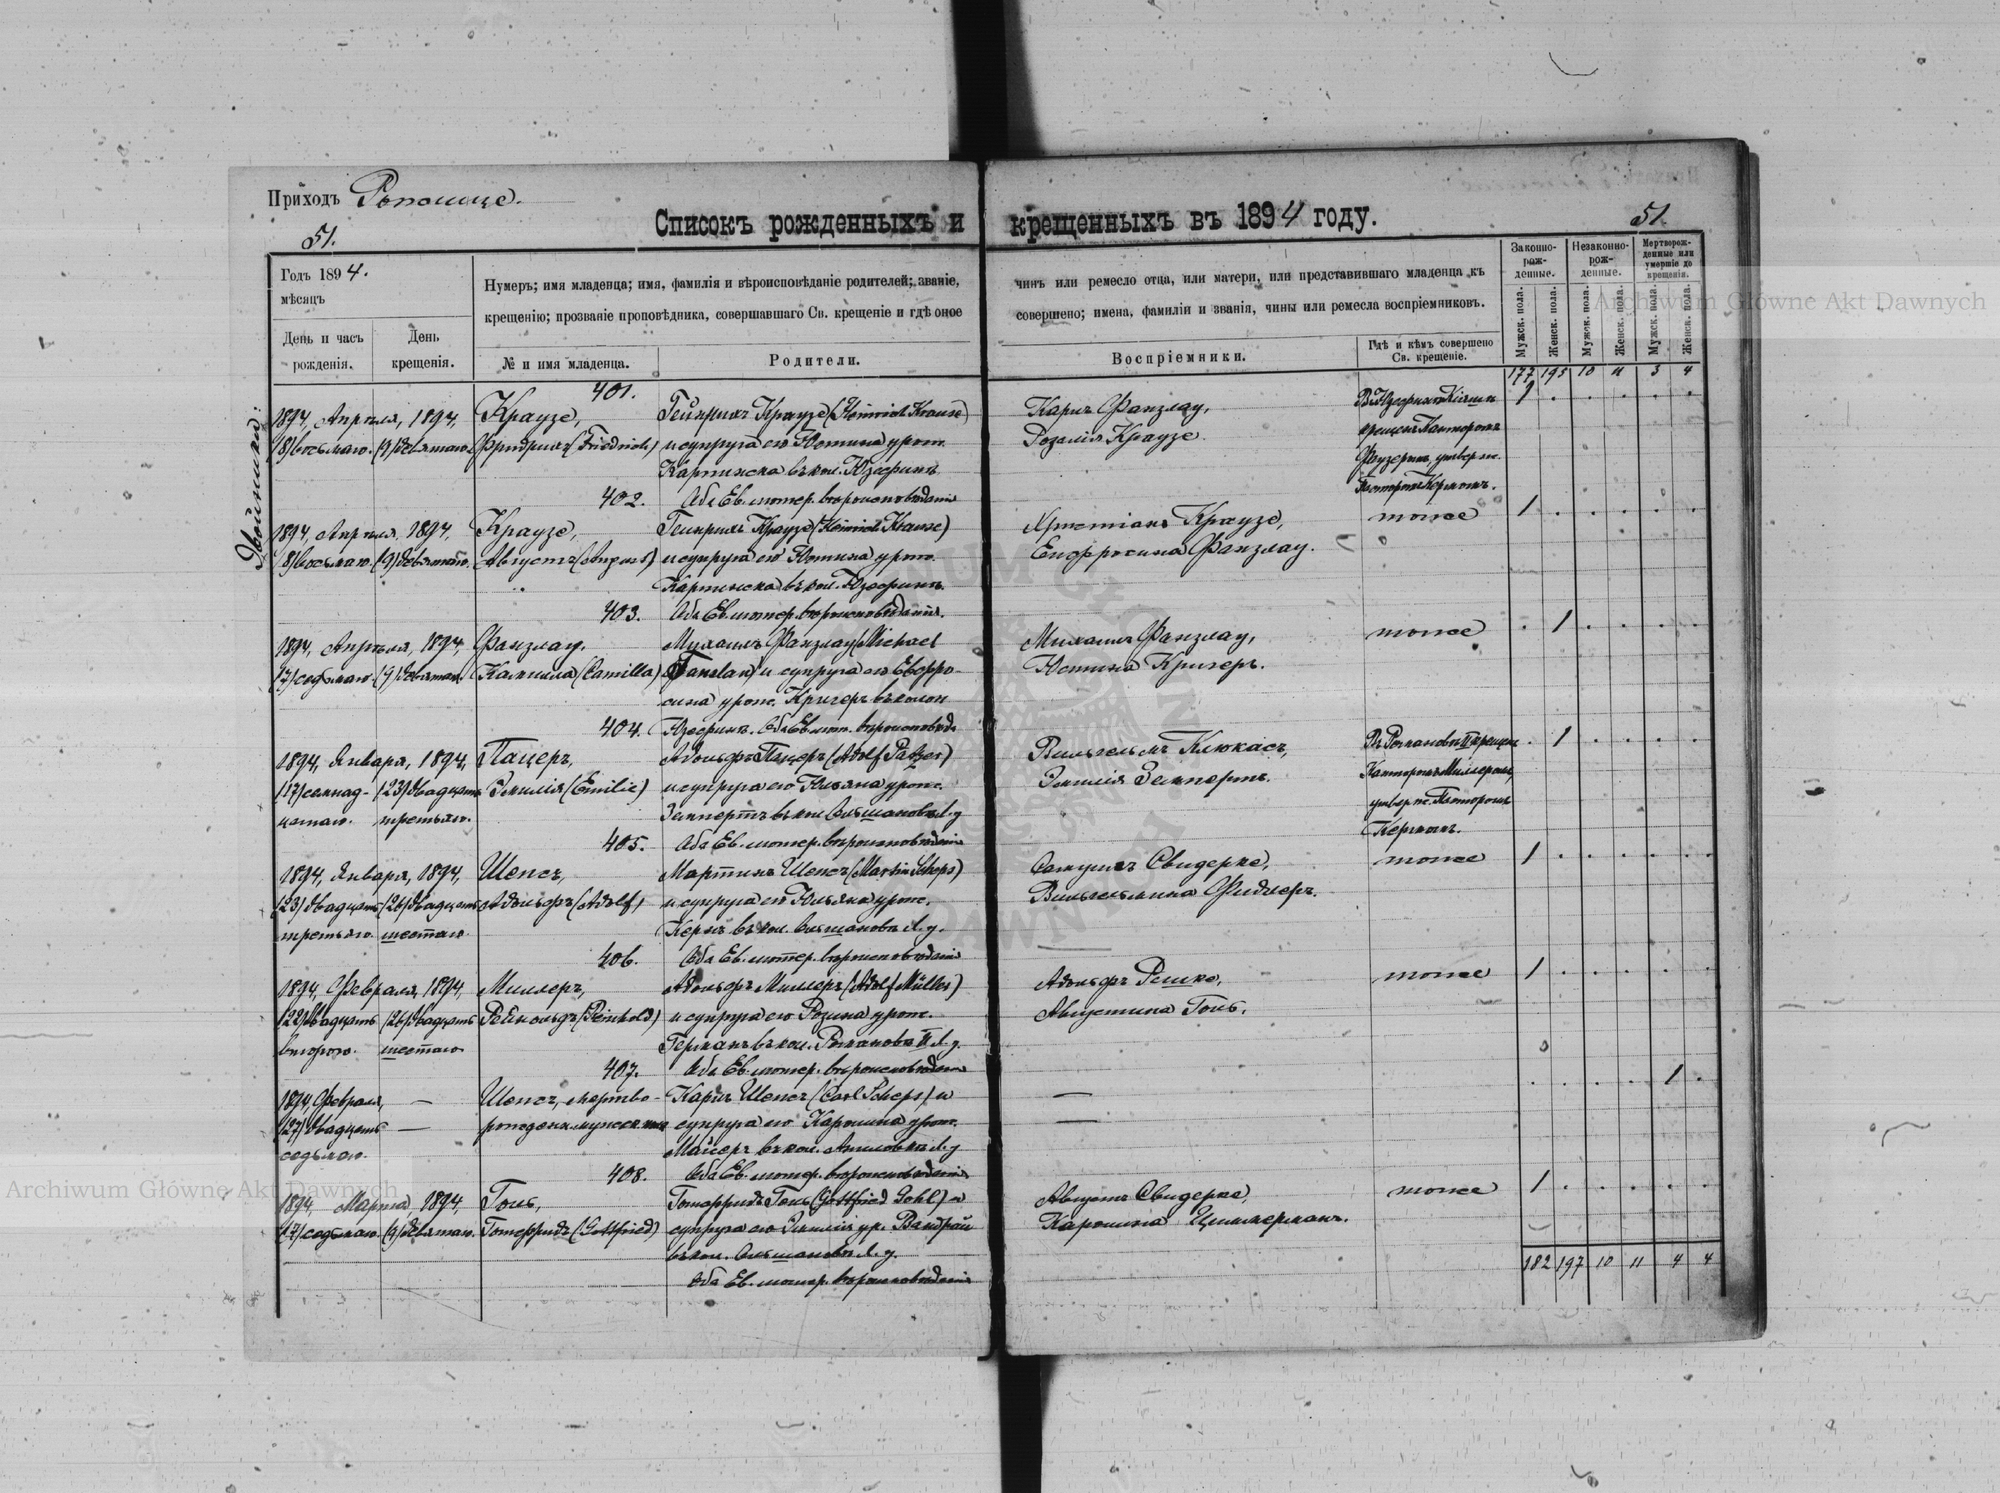 Приходъ Рополище.
51.
Списокъ рожденныхъ и крещенныхъ въ 1894 году.
51.
Годъ 1894.
мѣсяцъ
День и часъ рожденія.
День крещенія.
Нумеръ; имя младенца; имя, фамилія и вѣроисповѣданіе родителей; званіе, чинъ или ремесло отца, или матери, или представившаго младенца къ
крещенію; прозваніе проповѣдника, совершавшаго Св. крещеніе и гдѣ оное совершено; имена, фамиліи и званія, чины или ремесла воспріемниковъ.
№ и имя младенца.
Родители.
Воспріемники.
Гдѣ и кѣмъ совершено Св. крещеніе.
Законно-рож-денные.
Незаконно-рож-денные.
Мертворож-денные или умершіе до крещенія.
Мужск. пола.
Женск. пола.
Мужск. пола.
Женск. пола.
Мужск. пола.
Женск. пола.
177 195 10 11 3 4
Двойники:
401.
1894, Апрѣля, 1894, Краузе, Гейнрихъ Краузе (Heinrich Krause) Карлъ Фанзлау, 1
(8) восьмаго. (9) девятаго. Фридрихъ (Friedrich) и супруга его Юстина урож. Розалія Краузе.
въ кол. Юзефинъ
402. Оба Ев. лютер. вѣроисповѣданія
1894, Апрѣля, 1894, Краузе, Гейнрихъ Краузе (Heinrich Krause) Христіанъ Краузе, тоже 1
(8) восьмаго. (9) девятаго. Августъ (August) и супруга его Юстина урож. Ефросина Фанзлау.
въ кол. Юзефинъ.
403. Оба Ев. лютер. вѣроисповѣданія.
1894, Апрѣля, 1894, Фанзлау, Михаилъ Фанзлау (Michael Михаилъ Фанзлау, тоже 1
(7) седьмаго. (9) девятаго. Камилла (Camilla) Fanslau) и супруга его Евфро- Юстина Кригеръ.
сина урож. Кригеръ въ колон
404. Юзефинъ. Оба Ев. лют. вѣроисповѣд.
1894, Января, 1894, Пацеръ, Адольфъ Пацеръ (Adolf Patzer) Вильгельмъ Клюкасъ, 1
(17) семнад- (23) двадцать Эмилія (Emilie) и супруга его Юльяна урож.
цатаго. третьяго.
утверж. Пасторомъ
405. Оба Ев. лютер. вѣроисповѣданія Керномъ.
1894, Января, 1894, Шепсъ, Мартинъ Шепсъ (Martin Scheps) Самуилъ Свидерке, тоже 1
(23) двадцать (26) двадцать Адольфъ (Adolf) и супруга его Юльяна урож. Вильгельмина Фидлеръ.
третьяго. шестаго. Кернъ въ кол. Ольшановка Л. у.
406. Оба Ев. лютер. вѣроисповѣданія
1894, Февраля, 1894, Миллеръ, Адольфъ Миллеръ (Adolf Müller) Адольфъ Решке, тоже 1
(22) двадцать (26) двадцать Рейнольдъ (Reinhold) и супруга его Розина урож. Августина Голь.
втораго. шестаго Германъ въ кол. Романовъ II Л. у.
407. Оба Ев. лютер. вѣроисповѣданія
1894, Февраля, — Шепсъ, мертво- Карлъ Шепсъ (Carl Scheps) и — 1
(27) двадцать — супруга его Каролина урож. —
седьмаго. Майеръ въ кол.
408. Оба Ев. лютер. вѣроисповѣданія
1894, Марта, 1894, Голь, Готфридъ Голь (Gottfried Gohl) и Августъ Свидерке, тоже 1
(7) седьмаго. (9) девятаго. Готфридъ (Gottfried) супруга его Эмилія ур. Каролина Циммерманъ.
въ кол. Ольшановка Л. у.
Оба Ев. лютер. вѣроисповѣданія
182 197 10 11 4 4
Archiwum Główne Akt Dawnych
Archiwum Główne Akt Dawnych